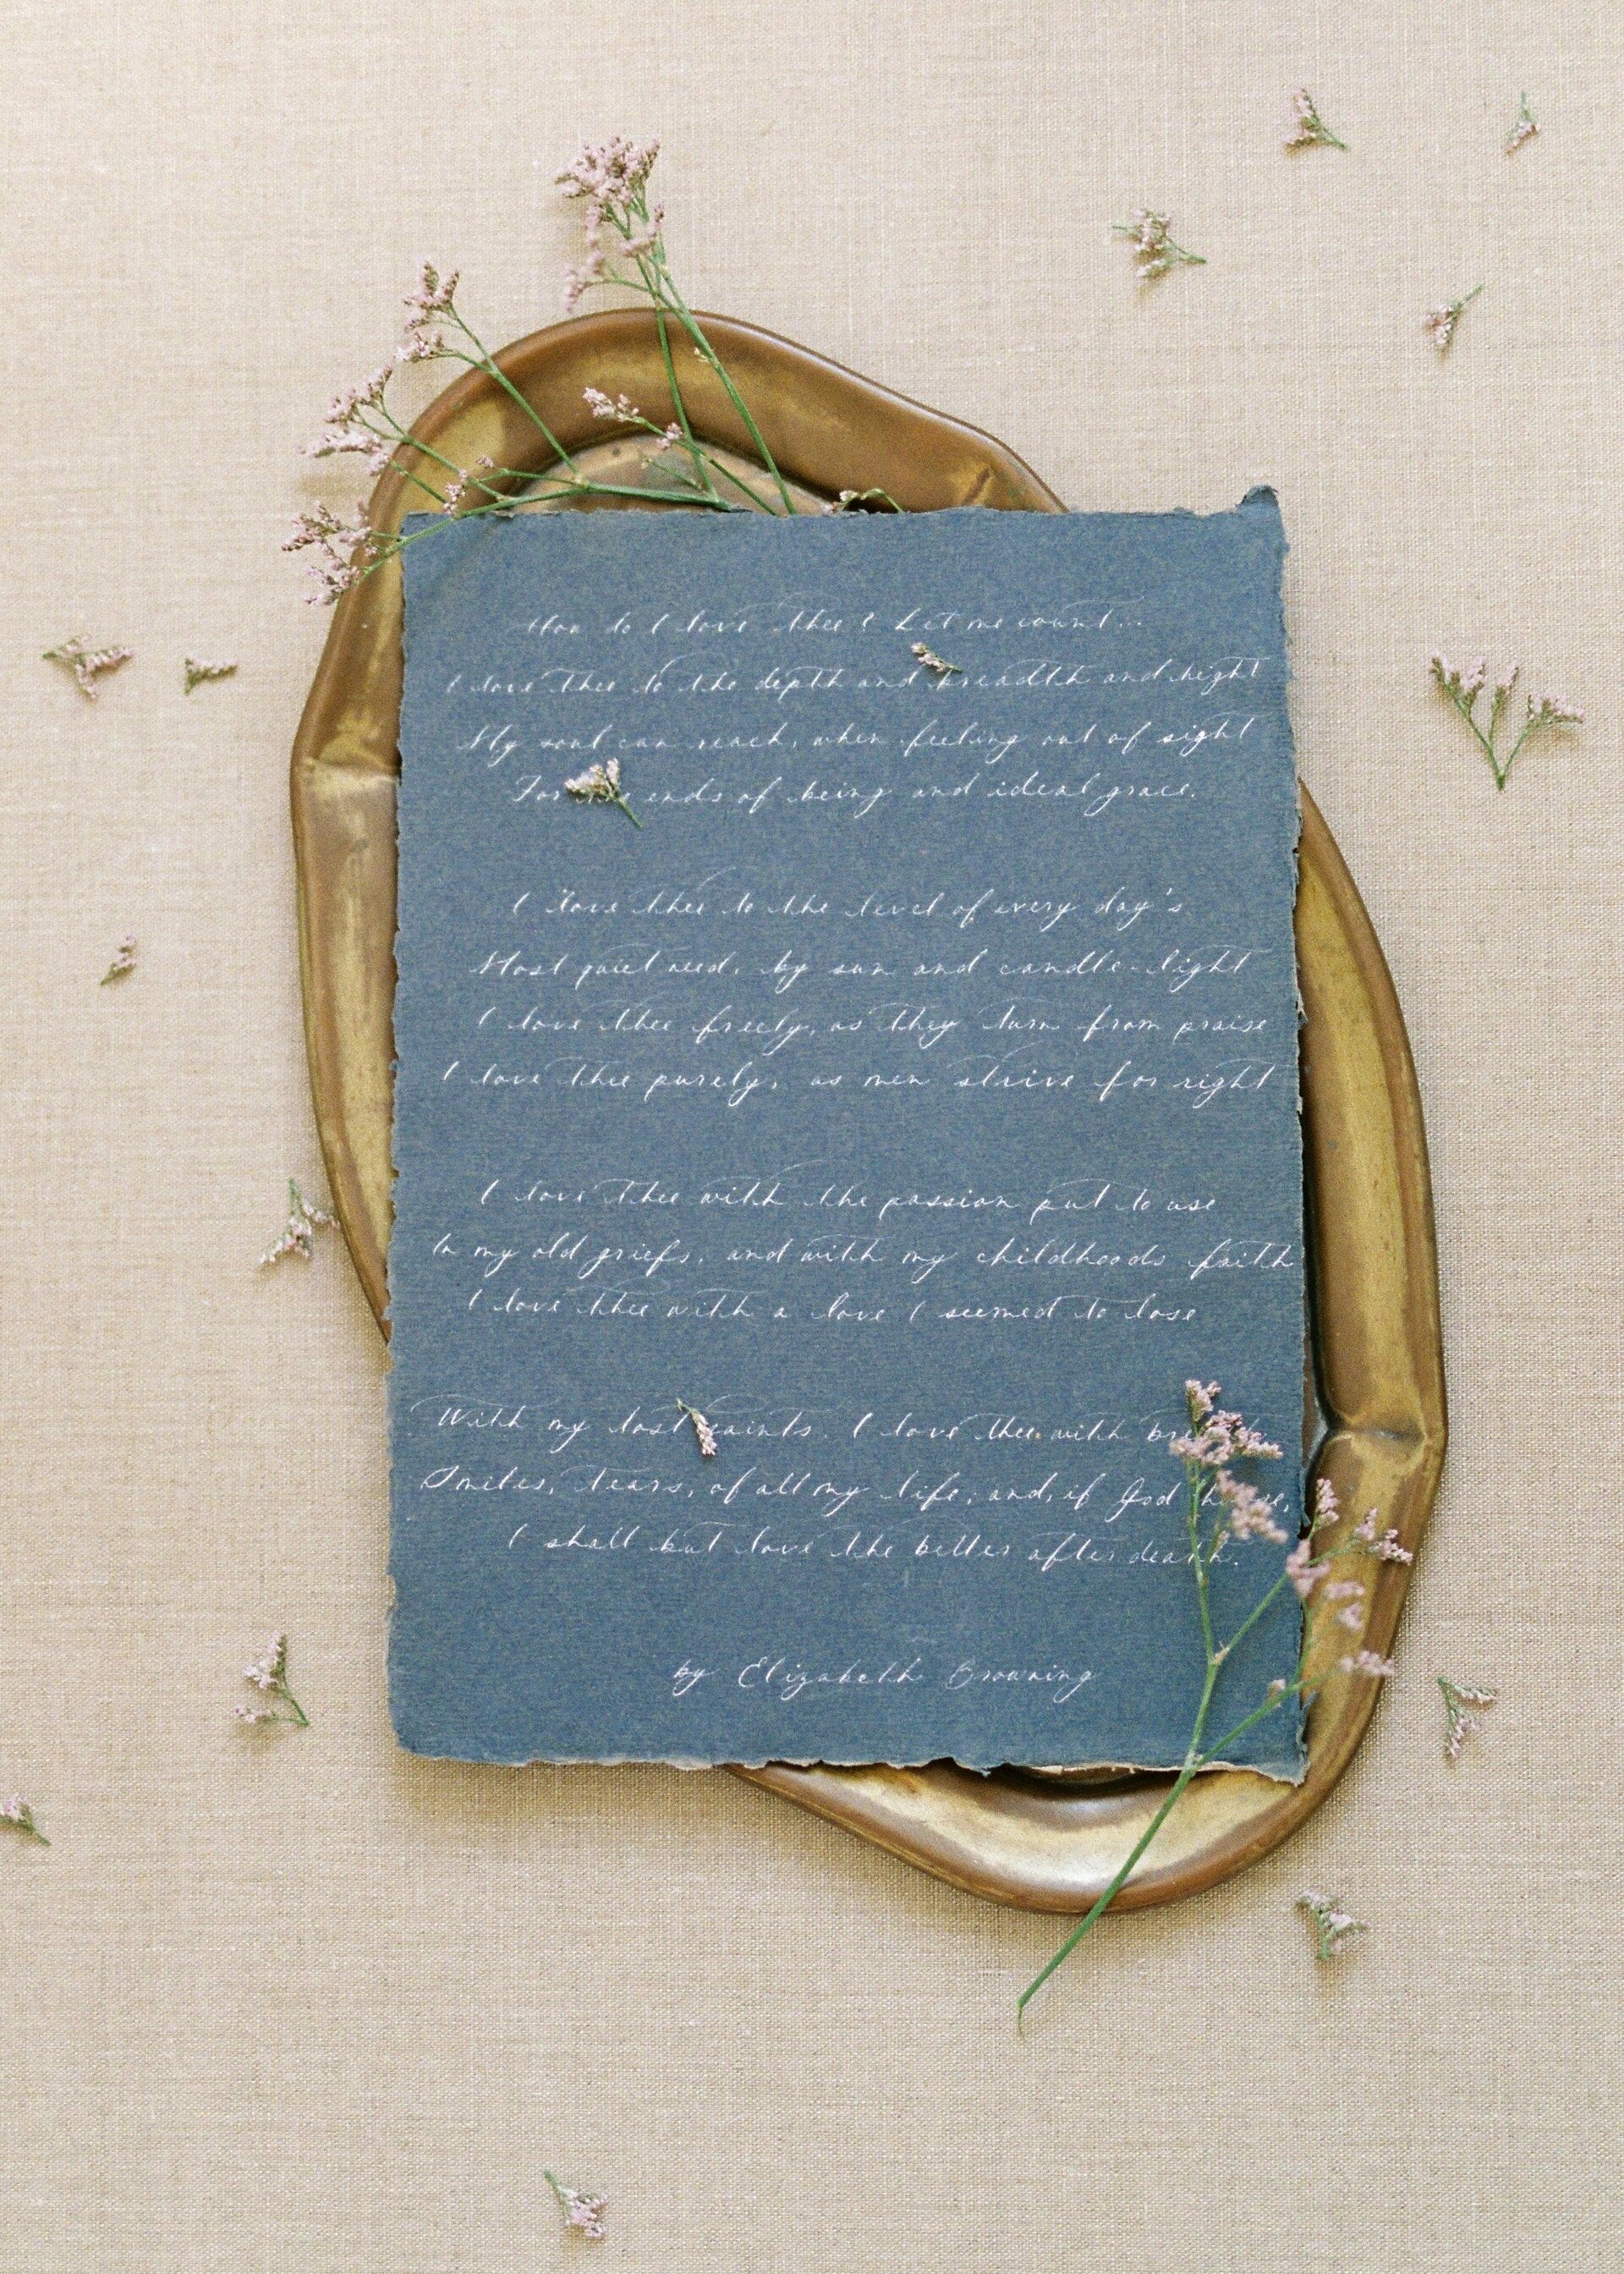 How do I love thee? Let me count...
I love thee to the depth and breadth and hight
My soul can reach, when feeling out of sight
For the ends of being and ideal grace.
I love thee to the level of every day's
Most quiet need, by sun and candle-light
I love thee freely, as they turn from praise
I love thee purely, as men strive for right
I love thee with the passion put to use
In my old griefs, and with my childhoods faith
I love thee with a love I seemed to lose
With my lost saints. I love thee with
Smiles, tears, of all my life; and, if God
I shall but love the better after death.
by Elizabeth Browning